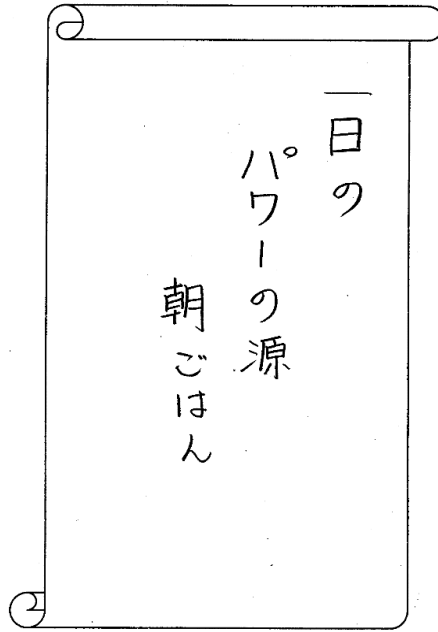 一日の
パワーの源
朝ごはん